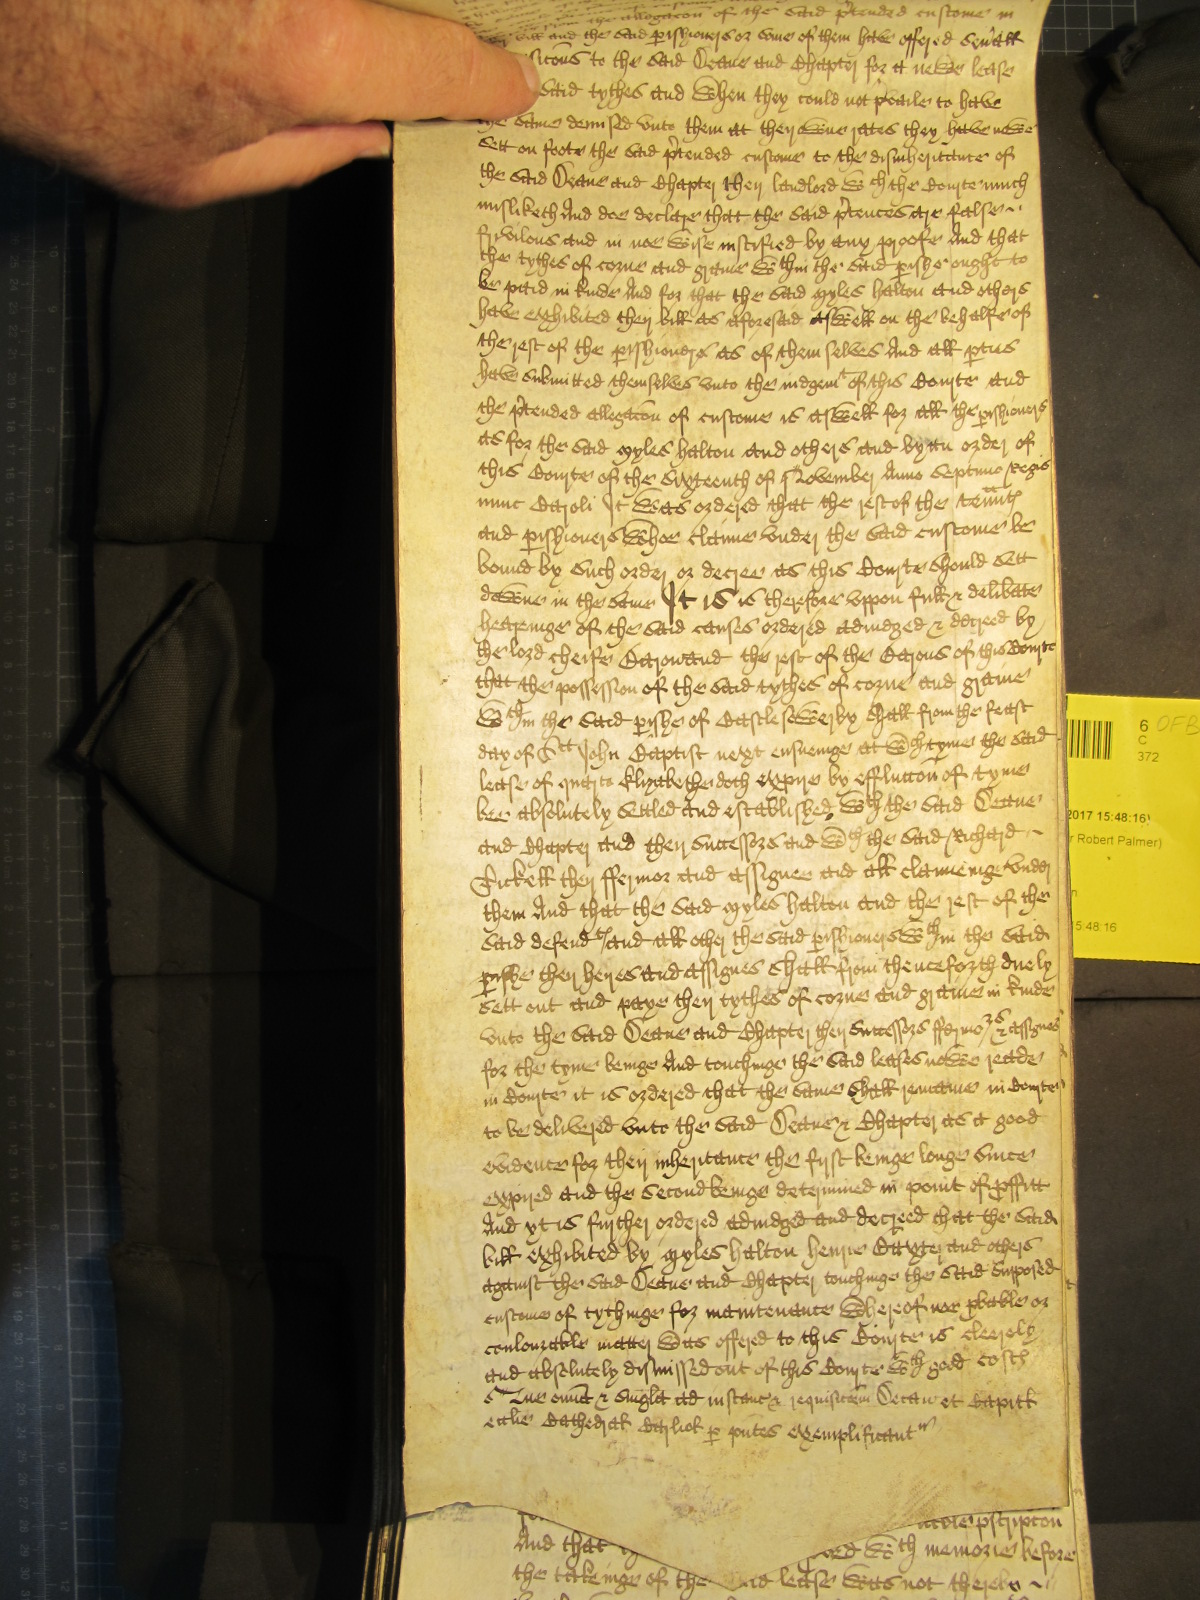 the allegacon of the said p'tended custome in
bill and the said p'ishioners or some of them have offered sev'all
to the said Deane and Chapter for a newe lease
said tythes and when they could not p'vaile to have
the same demised unto them at their owne rates they have nowe
sett on foote the said p'tended custome to the disinheritance of
the said Deane and Chapter their landlord wch the Courte much
misliketh And doe declare that the said p'tences are false
frivilous and in noe wise iustified by any proofe And that
the tythes of corne and graine wthin the said p'ishe ought to
be paid in kinde And for that the said Myles Halton and others
have exhibited their bill as aforesaid aswell on the behalfe of
the rest of the p'ishioners as of themselves And all p'ties
have submitted themselves unto the iudgemt of this Courte and
the p'tended allegacon of custome is aswell for all the p'ishioners
as for the said Myles Halton and others and by an order of
this Courte of the sixteenth of November Anno Septimo Regis
nunc Caroli It was ordered that the rest of the tennts
and p'ishioners whoe claime under the said custome be
bound by such order or decree as this Courte should sett
downe in the same It is is therefore uppon full & deliberate
hearinge of the said causes ordered adiudged & decreed by
the lord cheife Baron and the rest of the Barons of this Courte
that the possession of the said tythes of corne and graine
wthin the said p'ishe of Castlesowerby shall from the feast
day of Sct John Baptist next ensueinge at wch tyme the said
lease of quarto Elizabethe doth expire by effluxion of tyme
bee absolutely setled and established wth the said Deane
and Chapter and their Successors and wth the said Richard
Tickell their ffermor and assignee and all claimeinge under
them And that the said Myles Halton and the rest of the
said defendts and all other the said p'ishioners wthin the said
p'ishe their heires and assignes shall from thenceforth duely
sett out and paye their tythes of corne and graine in kinde
unto the said Deane and Chapter their Successors ffermors & assignes
for the tyme beinge And touchinge the said leases nowe reade
in Courte it is ordered that the same shall remaine in Courte
to be delivered unto the said Deane & Chapter as a good
evidence for their inheritance the first beinge longe since
expired and the second beinge determined in point of p'ffitt
And yt is further ordered adiudged and decreed that the said
bill exhibited by Myles Halton Henrie Baxter and others
against the said Deane and Chapter touchinge the said supposed
custome of tythinge for maintenance whereof noe p'bable or
coulourable matter was offered to this Courte is cleerely
and absolutely dismissed out of this Courte wth good costs
Que omia & singla ad instanc & requisicoem Decani et Capitli
eccliae Cathedral Carliol p p'ntes exemplificant
p'scripcon
And that wth memorie before
the takeinge of the said lease was not thereby